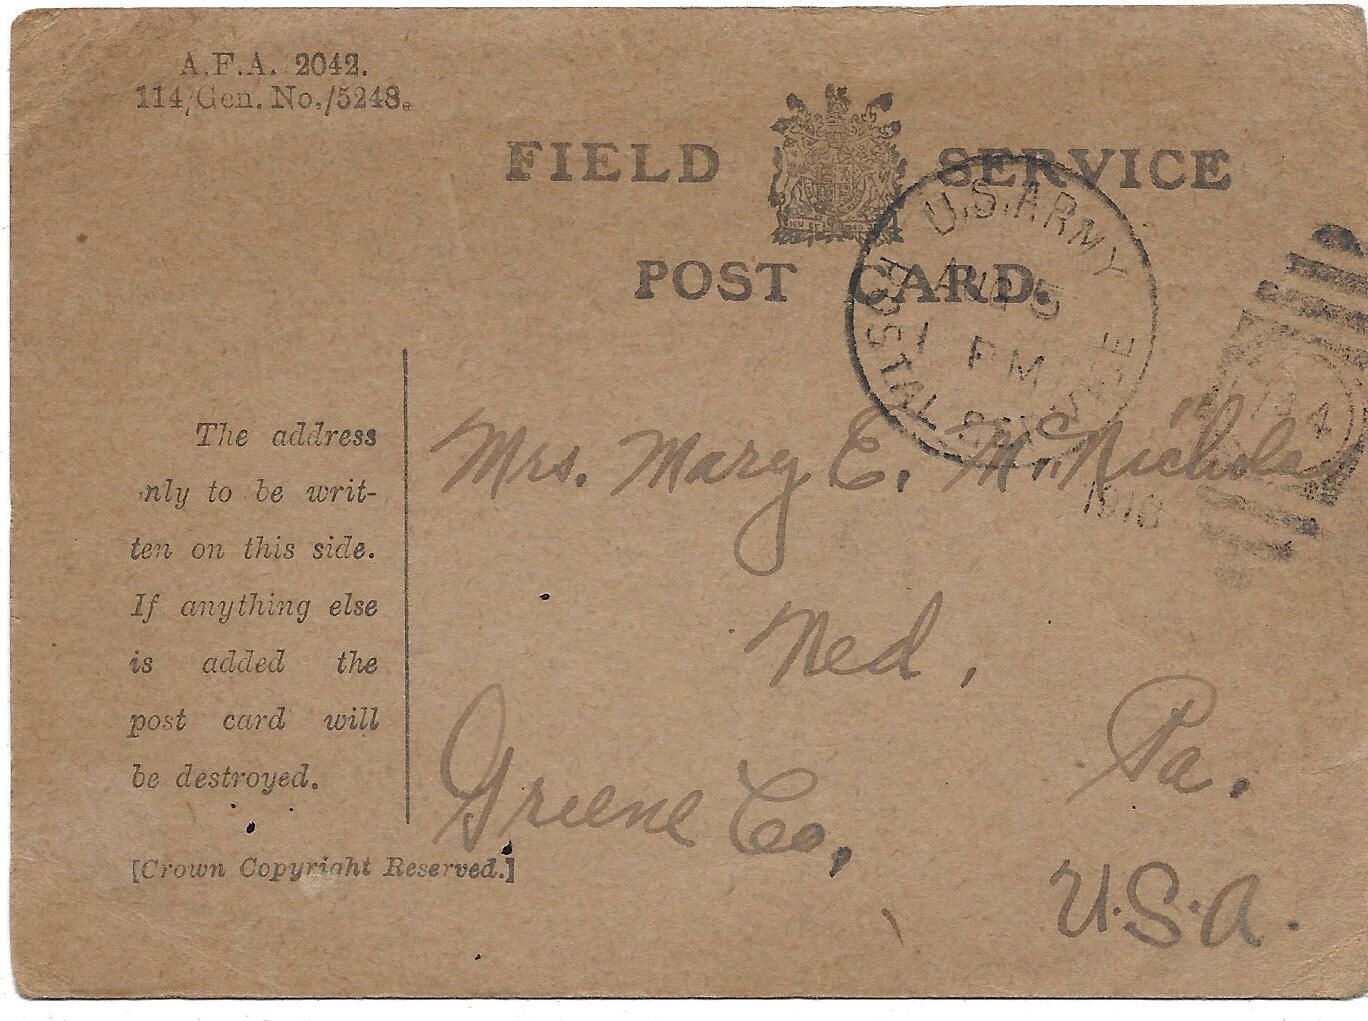 A.F.A. 2042.
114/Gen. No./5248.
FIELD SERVICE
POST CARD.
U.S. ARMY
POSTAL SERVICE
AUG 5
1 PM
1918
The address
nly to be writ-
ten on this side.
If anything else
is added the
post card will
be destroyed.
[Crown Copyright Reserved.]
Mrs. Mary E. McNichols
Ned,
Greene Co, Pa.
U.S.A.